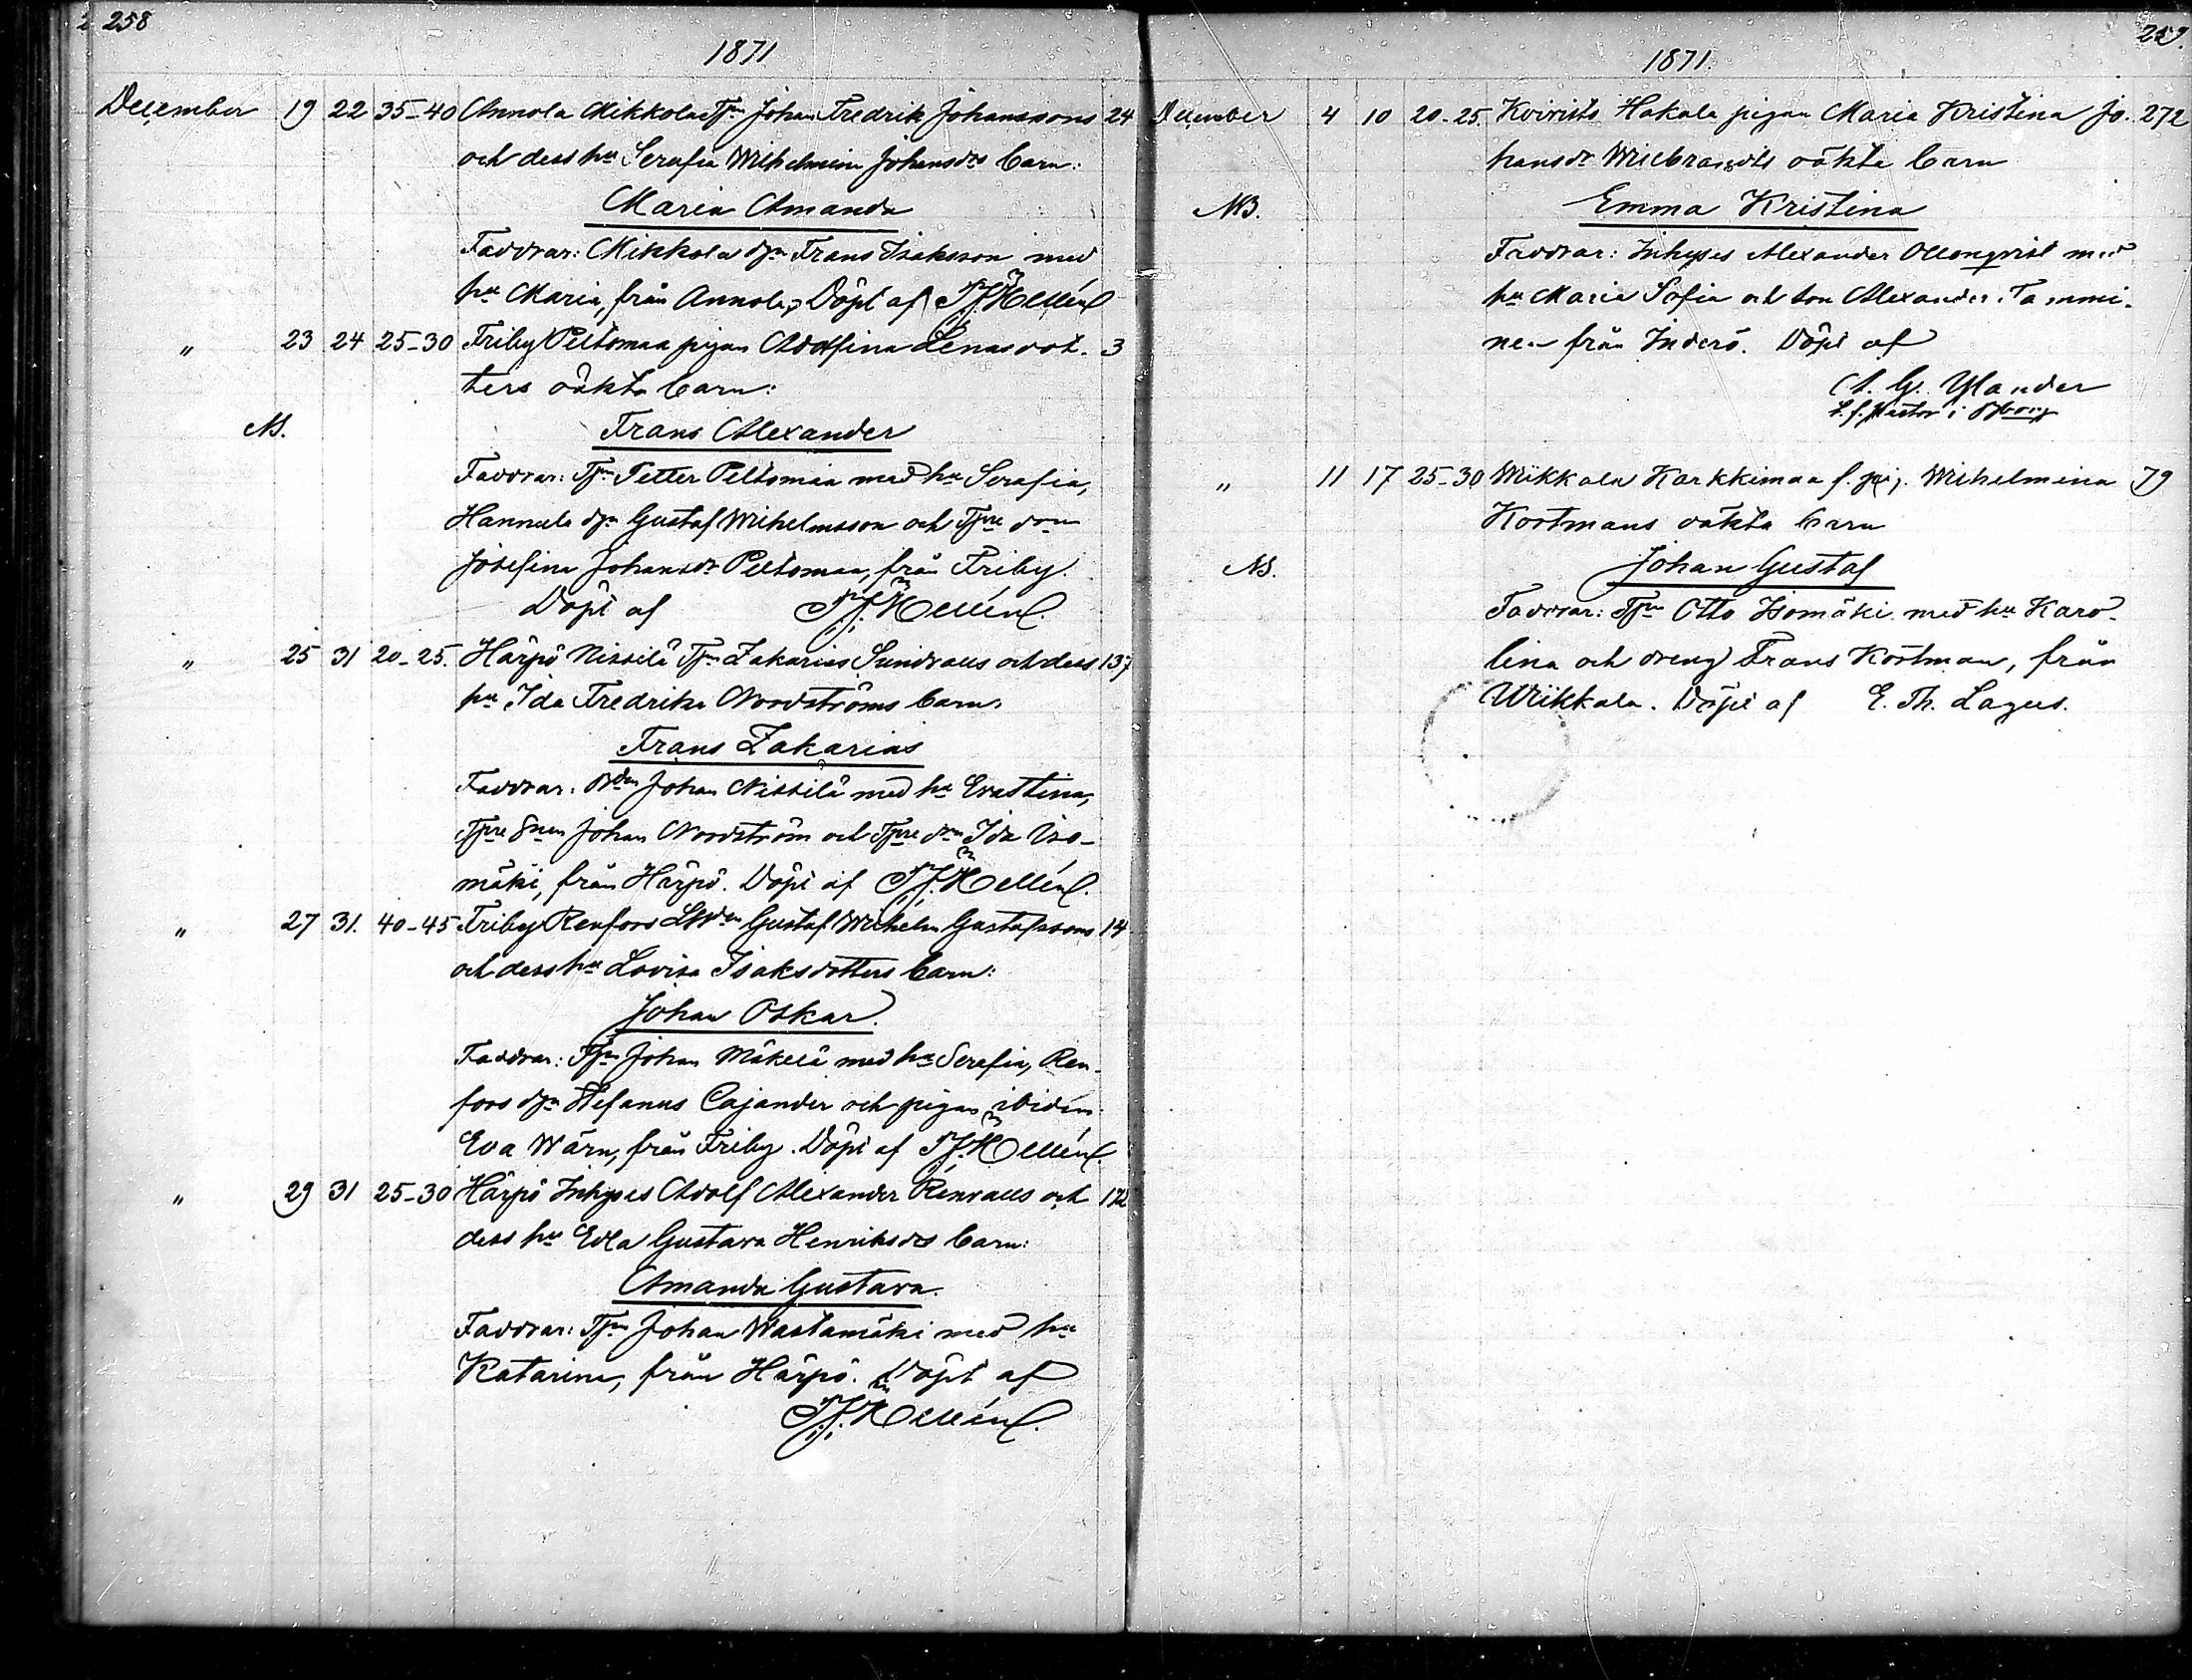 258
1871
December 19 22 35-40 Annola Mikkola Tpn Johan Fredrik Johanssons 24
och dess hu Serafia Wilhelmina Johansdrs barn:
Maria Amanda
Faddrar: Mikkola dpn Frans Isaksson med
hu Maria, från Annola, Döpt af Hellén
" 23 24 25-30 Friby Peltomaa pigan Adolfina Lenasdot- 3
ters oäkta barn:
NB.
Frans Alexander
Faddrar: Tpn Petter Peltomaa med hu Serafia,
Hannula dpn Gustaf Wilhelmsson och Tpre don
Josefina Johansdr Peltomaa, från Friby.
Döpt af Hellén.
" 25 31 20-25. Härpö Nissilä Tpn Zakarias Sundvalls och dess 137
hu Ida Fredrika Nordströms barn:
Frans Zakarias
Faddrar: Bden Johan Nissilä med hu Evastina,
Tpre Snen Johan Nordström och Tpre don Ida Iso-
mäki, från Härpö. Döpt af Hellén.
" 27 31. 40-45 Friby Renfors Gustaf Wilhelm Gustafssons 14
och dess hu Lovisa Isaksdotters barn:
Johan Oskar.
Faddrar: Tpn Johan Mäkelä med hu Serafia, Ren-
fors dpn Stefanus Cajander och pigan ibidem
Eva Wärn, från Friby. Döpt af Hellén.
" 29 31 25-30 Härpö Inhyses Adolf Alexander Renvalls och 172
dess hu Edla Gustava Henriksdrs barn:
Amanda Gustava.
Faddrar: Tpn Johan Wastamäki med hu
Katarina, från Härpö. Döpt af
Hellén.
259.
1871.
December 4 10 20-25. Koivisto Hakala pigan Maria Kristina Jo- 272
hansdr Willbrandts oäkta barn
NB.
Emma Kristina
Faddrar: Inhyses Alexander Ollonqvist med
hu Maria Sofia och son Alexander Tammi-
nen från Inderö. Döpt af
A. G. Ylander
t. f. Pastor i
" 11 17 25-30 Wiikkala Karkkimaa f. pig. Wilhelmina 79
Kortmans oäkta barn
NB.
Johan Gustaf
Faddrar: Tpn Otto Isomäki med hu Karo-
lina och dreng Frans Kortman, från
Wiikkala. Döpt af E. Th. Lagus.